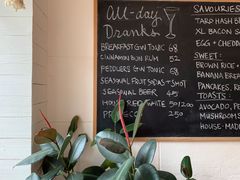 All-day
Dranks
BREAKFAST G+W TONIC 68
CINNAMON BUN RUM 52
PEDDLERS G+W TONIC 68
SEASONAL FRUIT SODAS + SHOT
SEASONAL BEER 45
HOUSE RED WHITE 50/200
PR EC O 52
SAVOURIES
TARO HASH B
XL BACON S
EGG + CHEDDA
SWEET:
BROWN RICE
BANANA BREA
PANCAKES, RE
TOASTS:
AVOCADO, PE
MUSHROOMS
HOUSE-MAD